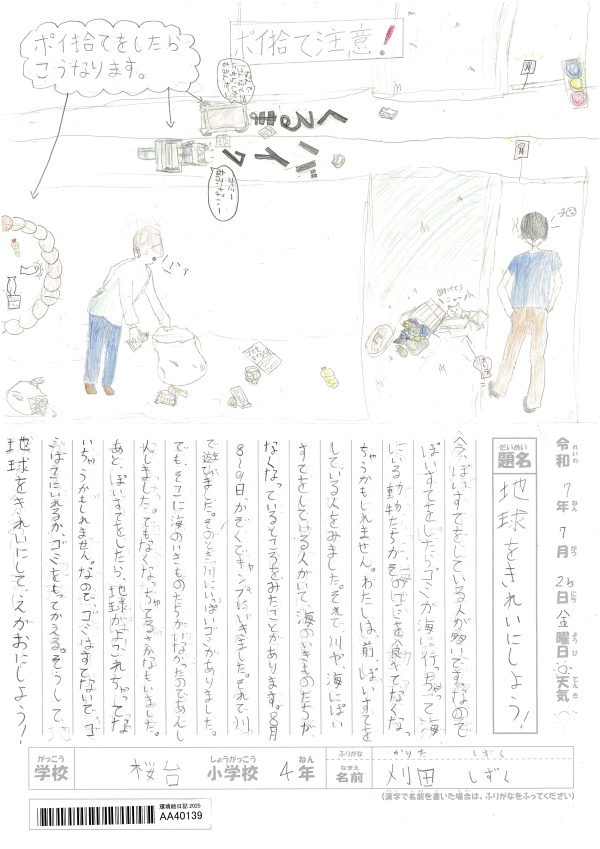 ポイ捨てをしたら
こうなります。
ポイ捨て注意!
くるま
バイク
ハァ
令和7年7月26日金曜日 天気
れいわ ねん がつ にち ようび てんき
だいめい
題名
地球をきれいにしよう!
今、ぽいすてをしている人が多いです。なので
ぽいすてをしたらゴミが海に行っちゃって海
にいる動物たちがその
ちゃうかもしれません。わたしは、前ぽいすてを
している人をみました。それで川や、海にぽい
すてをしている人がいて、海のいきものたちが
なくなっているところをみたことがあります。8月
8〜9日、かぞくでキャンプにいきました。それで川
で遊びました。そのとき川にいっぱいゴミがありました。
でも、そこに海のいきものたちがいなかったのであんし
んしました。でもなくなっちゃてるさかなもいました。
あと、ぽいすてをしたら、地球がよごれちゃってな
いちゃうかもしれません。なので、ゴミはすてないで、ゴ
ミばこにいれるか、ゴミをもってかえる。そうして、
地球をきれいにしてえがおにしよう!
がっこう
学校
桜台
しょうがっこう
小学校
4
ねん
年
ふりがな
かりた しずく
なまえ
名前
刈田 しずく
(漢字で名前を書いた場合は、ふりがなをふってください)
環境絵日記 2025
AA40139